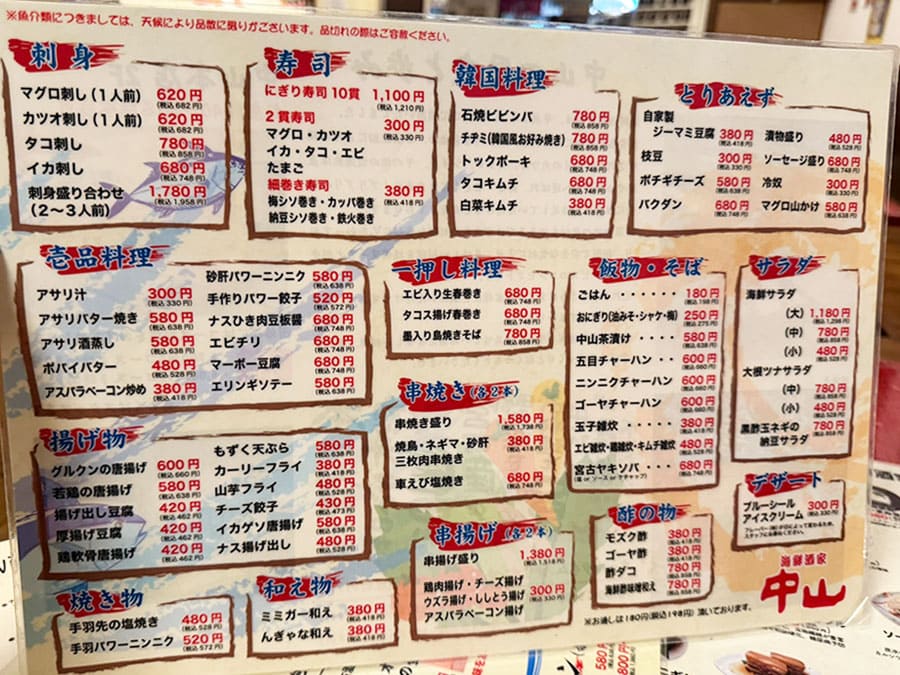 ※魚介類につきましては、天候により品数に限りがございます。品切れの際はご容赦ください。
刺身
マグロ刺し(1人前) 620円 (税込682円)
カツオ刺し(1人前) 620円 (税込682円)
タコ刺し 780円 (税込858円)
イカ刺し 680円 (税込748円)
刺身盛り合わせ 1,780円 (税込1,958円)
(2～3人前)
寿司
にぎり寿司10貫 1,100円 (税込1,210円)
2貫寿司 300円 (税込330円)
マグロ・カツオ
イカ・タコ・エビ
たまご
細巻き寿司 380円 (税込418円)
梅シソ巻き・カッパ巻き
納豆シソ巻き・鉄火巻き
韓国料理
石焼ビビンバ 780円 (税込858円)
チヂミ(韓国風お好み焼き) 780円 (税込858円)
トックポーキ 680円 (税込748円)
タコキムチ 680円 (税込748円)
白菜キムチ 380円 (税込418円)
とりあえず
自家製
ジーマミ豆腐 380円 (税込418円)
枝豆 300円 (税込330円)
ポチギチーズ 580円 (税込638円)
バクダン 680円 (税込748円)
漬物盛り 480円 (税込528円)
ソーセージ盛り 680円 (税込748円)
冷奴 300円 (税込330円)
マグロ山かけ 580円 (税込638円)
壱品料理
アサリ汁 300円 (税込330円)
アサリバター焼き 580円 (税込638円)
アサリ酒蒸し 580円 (税込638円)
ポパイバター 480円 (税込528円)
アスパラベーコン炒め 380円 (税込418円)
砂肝パワーニンニク 580円 (税込638円)
手作りパワー餃子 520円 (税込572円)
ナスひき肉豆板醤 680円 (税込748円)
エビチリ 680円 (税込748円)
マーボー豆腐 680円 (税込748円)
エリンギソテー 580円 (税込638円)
一押し料理
エビ入り生春巻き 680円 (税込748円)
タコス揚げ春巻き 680円 (税込748円)
墨入り島焼きそば 780円 (税込858円)
飯物・そば
ごはん ・・・・・・ 180円 (税込198円)
おにぎり(油みそ・シャケ・梅) 250円 (税込275円)
中山茶漬け ・・・・ 580円 (税込638円)
五目チャーハン ・・ 600円 (税込660円)
ニンニクチャーハン 600円 (税込660円)
ゴーヤチャーハン 600円 (税込660円)
玉子雑炊 ・・・・・ 380円 (税込418円)
エビ雑炊・鶏雑炊・キムチ雑炊 480円 (税込528円)
宮古ヤキソバ ・・・ 680円 (税込748円)
(塩 or ソース or ケチャップ)
サラダ
海鮮サラダ
(大) 1,180円 (税込1,298円)
(中) 780円 (税込858円)
(小) 480円 (税込528円)
大根ツナサラダ
(中) 780円 (税込858円)
(小) 480円 (税込528円)
黒酢玉ネギの 780円 (税込858円)
納豆サラダ
串焼き(各2本)
串焼き盛り 1,580円 (税込1,738円)
焼鳥・ネギマ・砂肝 380円 (税込418円)
三枚肉串焼き
車えび塩焼き 680円 (税込748円)
揚げ物
グルクンの唐揚げ 600円 (税込660円)
若鶏の唐揚げ 580円 (税込638円)
揚げ出し豆腐 420円 (税込462円)
厚揚げ豆腐 420円 (税込462円)
鶏軟骨唐揚げ 420円 (税込462円)
もずく天ぷら 580円 (税込638円)
カーリーフライ 380円 (税込418円)
山芋フライ 480円 (税込528円)
チーズ餃子 430円 (税込473円)
イカゲソ唐揚げ 580円 (税込638円)
ナス揚げ出し 480円 (税込528円)
串揚げ(各2本)
串揚げ盛り 1,380円 (税込1,518円)
鶏肉揚げ・チーズ揚げ 300円 (税込330円)
ウズラ揚げ・ししとう揚げ
アスパラベーコン揚げ
酢の物
モズク酢 380円 (税込418円)
ゴーヤ酢 380円 (税込418円)
酢ダコ 780円 (税込858円)
海鮮酢味噌和え 780円 (税込858円)
デザート
ブルーシール 300円 (税込330円)
アイスクリーム
焼き物
手羽先の塩焼き 480円 (税込528円)
手羽パワーニンニク 520円 (税込572円)
和え物
ミミガー和え 380円 (税込418円)
んぎゃな和え 380円 (税込418円)
海鮮居酒家
中山
※お通しは180円(税込198円)頂いております。